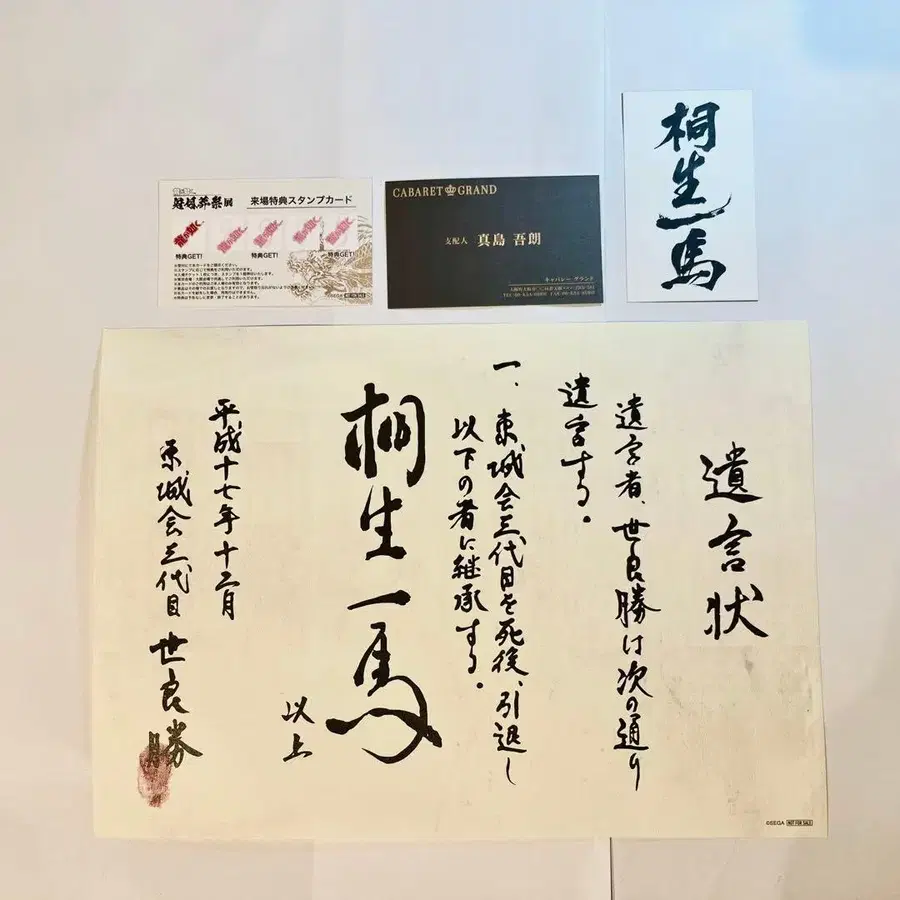 冠婚葬祭展
来場特典スタンプカード
龍が如く
龍が如く
龍が如く
龍が如く
龍が如く
特典GET!
特典GET!
特典GET!
©SEGA NOT FOR SALE
CABARET GRAND
支配人 真島 吾朗
キャバレー グランド
桐生一馬
遺言状
遺言者、世良勝は次の通り
遺言する。
一、東城会三代目を死後、引退し
以下の者に継承する。
桐生一馬
以上
平成十七年十二月
東城会三代目 世良勝
©SEGA NOT FOR SALE